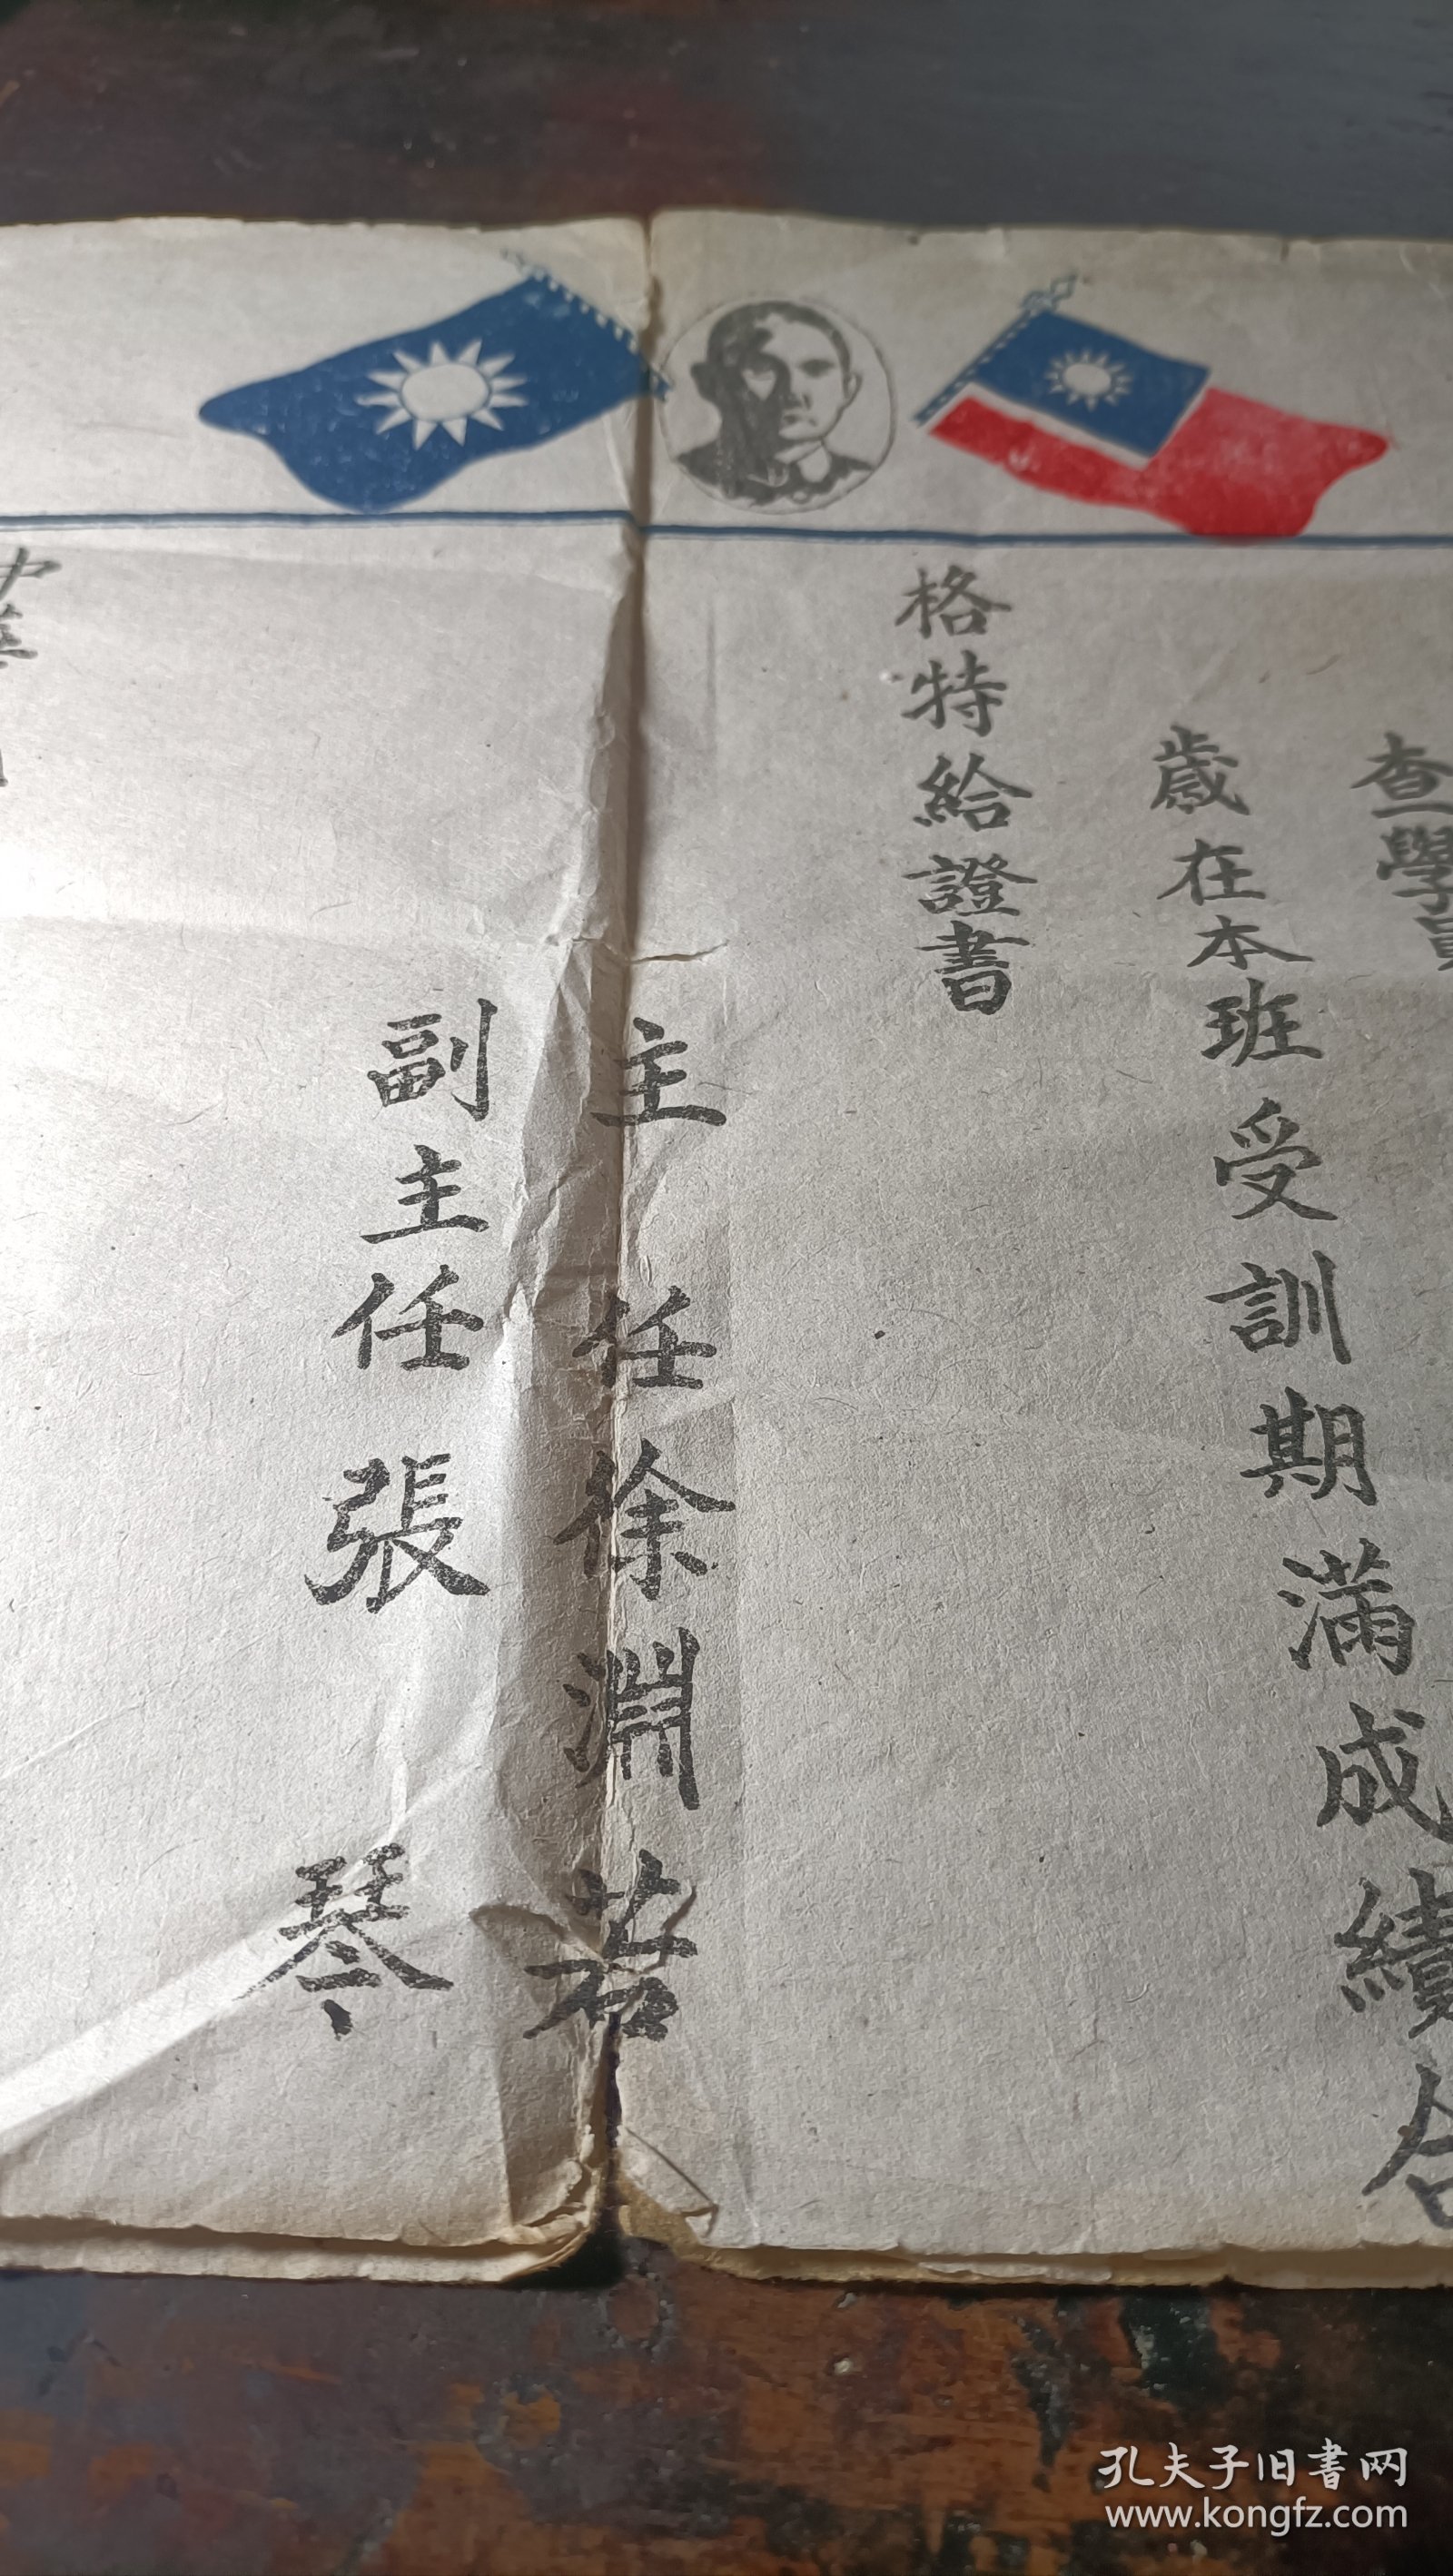 查學員
歲在本班受訓期滿成績合
格特給證書
主任徐淵若
副主任張琴
中華
孔夫子旧书网
www.kongfz.com